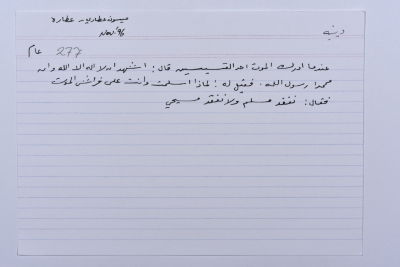 دينية
ميسون عطاري عطارة
Nov. 96
277 عام
عندما ادرك الموت احد القسيسين قال: اشهد ان لا اله الا الله وان
محمدا رسول الله. فقيل له: لماذا اسلمت وانت على فراش الموت
فقال: نفقد مسلم ولا نفقد مسيحي